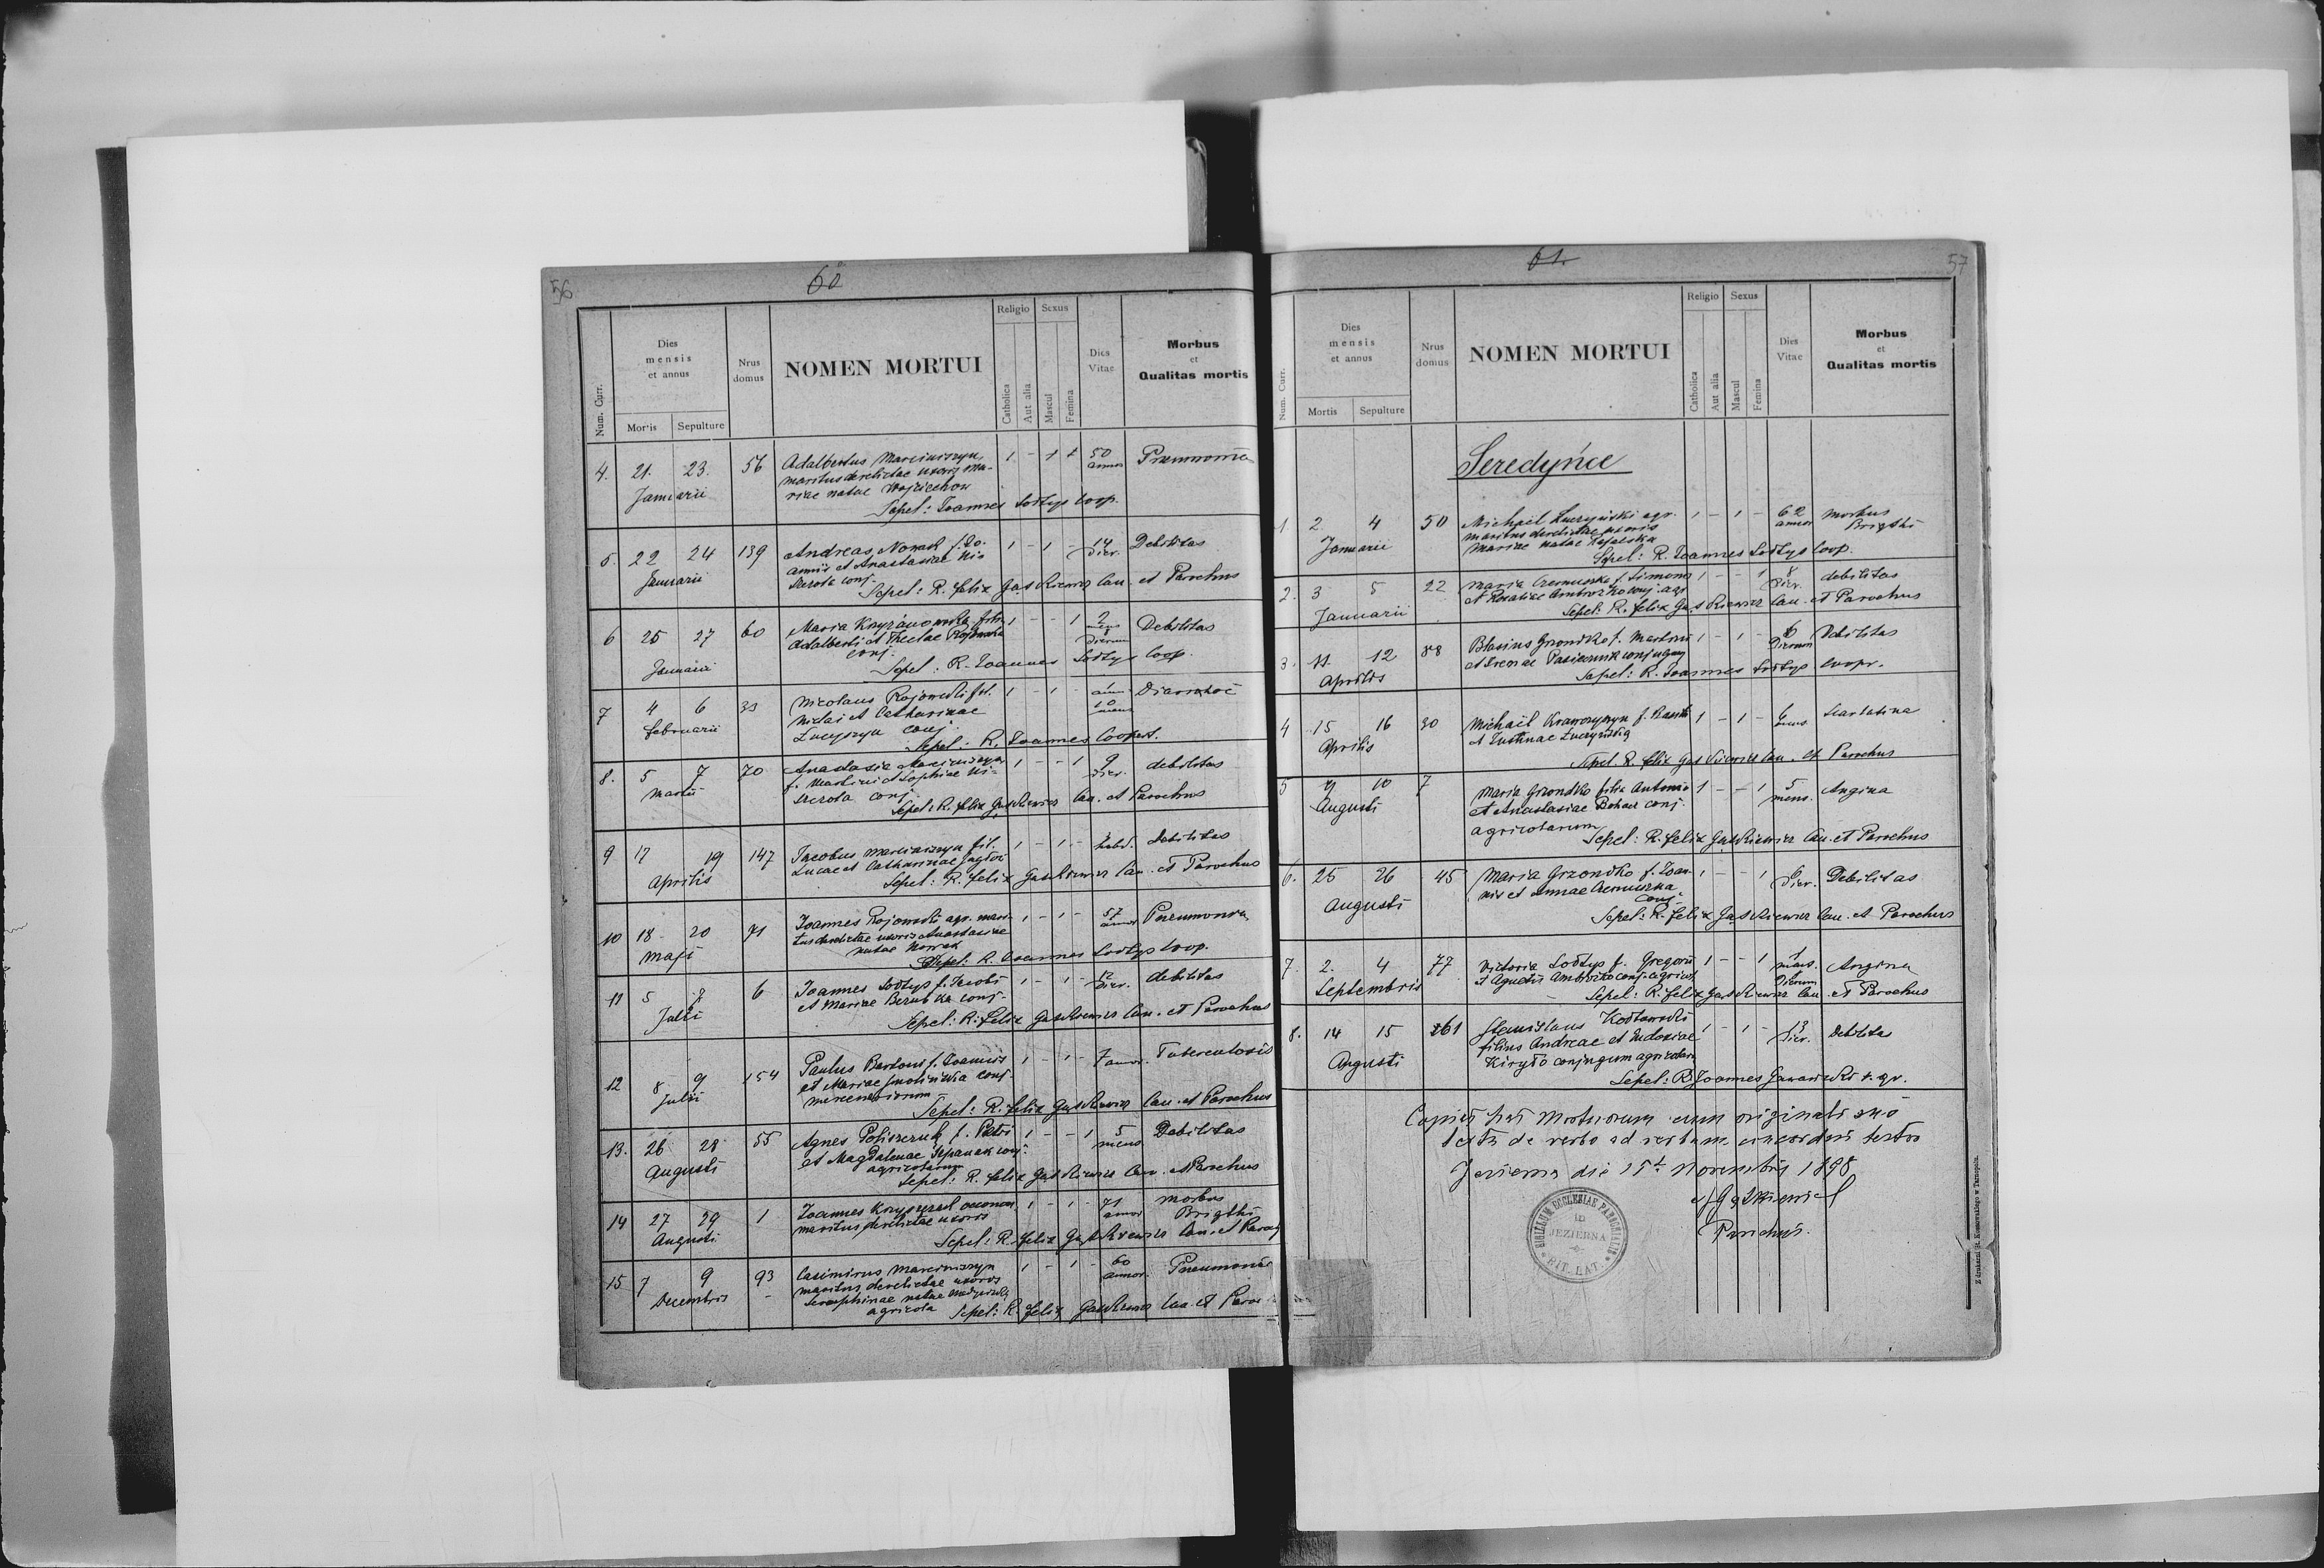 56
60
Num. Curr.
Dies mensis et annus
Mortis
Sepulture
Nrus domus
NOMEN MORTUI
Religio
Catholica
Aut alia
Sexus
Mascul
Femina
Dies Vitae
Morbus et Qualitas mortis
4. 21. 23. 56 Adalbertus Marciniszyn 1 - 50 Pneumonia
Januarii maritus derelictae uxoris Ma- annor
riae natae Wojciechow
Sepel: Joannes Sołtys Coop.
5. 22 24 139 Andreas Nowak f. Jo- 1 - 1 - 14 Debilitas
Januarii annis et Anastasiae dier.
conj.
Sepel: R. Felix Gaśkiewicz Can. et Parochus
6 25 27 60 Maria 1 - - 1 2 Debilitas
Januarii Adalberti et Theclae mens
conj. dierum
Sepel: R. Joannes Sołtys Coop.
7 4 6 33 Nicolaus Rojowski fil. 1 - 1 - Diarrhoe
Februarii et Catharinae 10 mens
conj.
Sepel: R. Joannes
8. 5 7 70 Anastasia Marciniszyn 1 - - 1 9 debilitas
Martii f. Martini et Sophiae dier.
conj.
Sepel: R. Felix Gaśkiewicz Can. et Parochus
9 17 19 147 Jacobus Marciniszyn fil. 1 - 1 - Debilitas
Aprilis Lucae et Catharinae hebd.
Sepel: R. Felix Gaśkiewicz Can. et Parochus
10 18 20 71 Joannes Rojowski agr. mari- 1 - 1 - 57 Pneumonia
Maji tus derelictae uxoris Anastasiae annor
natae Nowak
Sepel: R. Joannes Sołtys Coop.
11 5 7 6 Joannes Sołtys f. Jacobi 1 - 1 - 12 debilitas
Julii et Mariae conj. dier.
Sepel: R. Felix Gaśkiewicz Can. et Parochus
12 8 9 154 Paulus f. Joannis 1 - 1 - 7 Tuberculosis
Julii et Mariae conj. annor.
Sepel: R. Felix Gaśkiewicz Can. et Parochus
13. 26 28 55 Agnes f. Petri 1 - - 1 5 Debilitas
Augusti et Magdalenae conj. mens
agricolarum
Sepel: R. Felix Gaśkiewicz Can. et Parochus
14 27 29 1 Joannes 1 - 1 - 71 morbus
Augusti maritus derelictae uxoris annor Brigthi
Sepel: R. Felix Gaśkiewicz Can. et
15 7 9 93 Casimirus Marciniszyn 1 - 1 - 60 Pneumonia
Decembris maritus derelictae uxoris annor.
Seraphinae natae
agricola Sepel: R. Felix Gaśkiewicz Can. et
57
61.
Num. Curr.
Dies mensis et annus
Mortis
Sepulture
Nrus domus
NOMEN MORTUI
Religio
Catholica
Aut alia
Sexus
Mascul
Femina
Dies Vitae
Morbus et Qualitas mortis
Seredyńce
1 2 4 50 Michael Łuczyński agr. 1 - 1 - 62 morbus
Januarii maritus derelictae uxoris annor Brigthi
Mariae natae
Sepel: R. Joannes Sołtys Coop.
2. 3 5 22 Maria f. Simonis 1 - - 1 8 debilitas
Januarii et Rosaliae conj. agr. dier.
Sepel: R. Felix Gaśkiewicz Can. et Parochus
3. 11. 12 88 Blasius Grzondko f. Martini 1 - 1 - 6 Debilitas
Aprilis et Irenae conjugum dierum
Sepel: R. Joannes Sołtys Coopr.
4 15 16 30 Michael f. 1 - 1 - 6 Scarlatina
Aprilis et Justinae Łuczyńska mens
Sepel R. Felix Gaśkiewicz Can. et Parochus
5 9 10 7 Maria Grzondko filia Antonii 1 - - 1 5 Angina
Augusti et Anastasiae conj. mens.
agricolarum
Sepel: R. Felix Gaśkiewicz Can. et Parochus
6. 25 26 45 Maria Grzondko f. Joan- 1 - - 1 6 Debilitas
Augusti nis et Annae conj. dier.
Sepel: R. Felix Gaśkiewicz Can. et Parochus
7. 2. 4 77 Victoria Sołtys f. Gregorii 1 - - 1 1 mens. Angina
Septembris et Agnetis conj. agricol. dierum
Sepel: R. Felix Gaśkiewicz Can. et Parochus
8. 14 15 261 Stanislaus Kozłowski 1 - 1 - 13 Debilitas
Augusti filius Andreae et Eudoxiae dier.
Kiryło conjugum agricolarum
Sepel: R. Joannes r. gr.
Copiam hanc Mortuorum cum originali suo
de verbo ad verbum concordare testor
Jezierna die 15t Novembris 1898
Gaśkiewicz
Parochus.
SIGILLUM ECCLESIAE PAROCHIALIS
IN
JEZIERNA
RIT. LAT.
Z drukarni St. Kossowskiego w Tarnopolu.